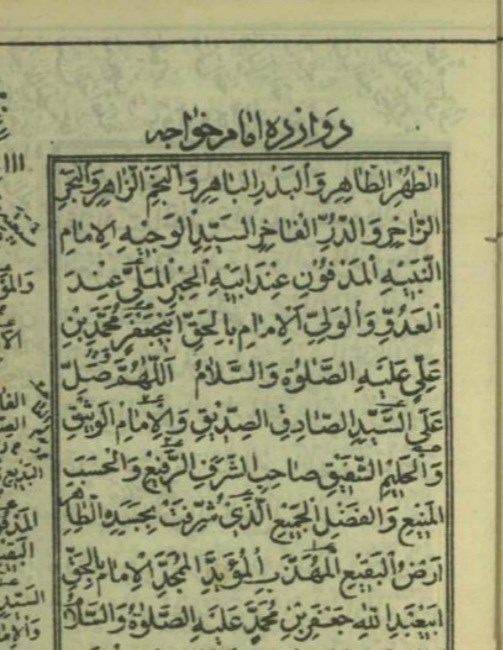 دوازده امام خواجه
الطُّهْرِ الطَّاهِرِ وَالْبَدْرِ الْبَاهِرِ وَالنَّجْمِ الزَّاهِرِ وَالْبَحْرِ
الزَّاخِرِ وَالدُّرِّ الْفَاخِرِ السَّيِّدِ الْوَجِيهِ الْاِمَامِ
النَّبِيهِ الْمَدْفُونِ عِنْدَ اَبِيهِ الْحِبْرِ الْمَلِيِّ عِنْدَ
الْعَدُوِّ وَالْوَلِيِّ الْاِمَامِ بِالْحَقِّ اَبِيجَعْفَرٍ مُحَمَّدِ بْنِ
عَلِيٍّ عَلَيْهِ الصَّلٰوةُ وَالسَّلَامُ اَللّٰهُمَّ صَلِّ
عَلَى السَّيِّدِ الصَّادِقِ الصِّدِّيقِ وَالْاِمَامِ الْوَثِيقِ
وَالْحَلِيمِ الشَّفِيقِ صَاحِبِ الشَّرَفِ الرَّفِيعِ وَالْحَسَبِ
الْمَنِيعِ وَالْفَضْلِ الْجَمِيعِ الَّذِي شُرِّفَتْ بِجَسَدِهِ الطَّاهِرِ
اَرْضُ الْبَقِيعِ الْمُهَذَّبِ الْمُؤَيَّدِ الْمُمَجَّدِ الْاِمَامِ بِالْحَقِّ
اَبِيعَبْدِ اللّٰهِ جَعْفَرِ بْنِ مُحَمَّدٍ عَلَيْهِ الصَّلٰوةُ وَالسَّلَامُ